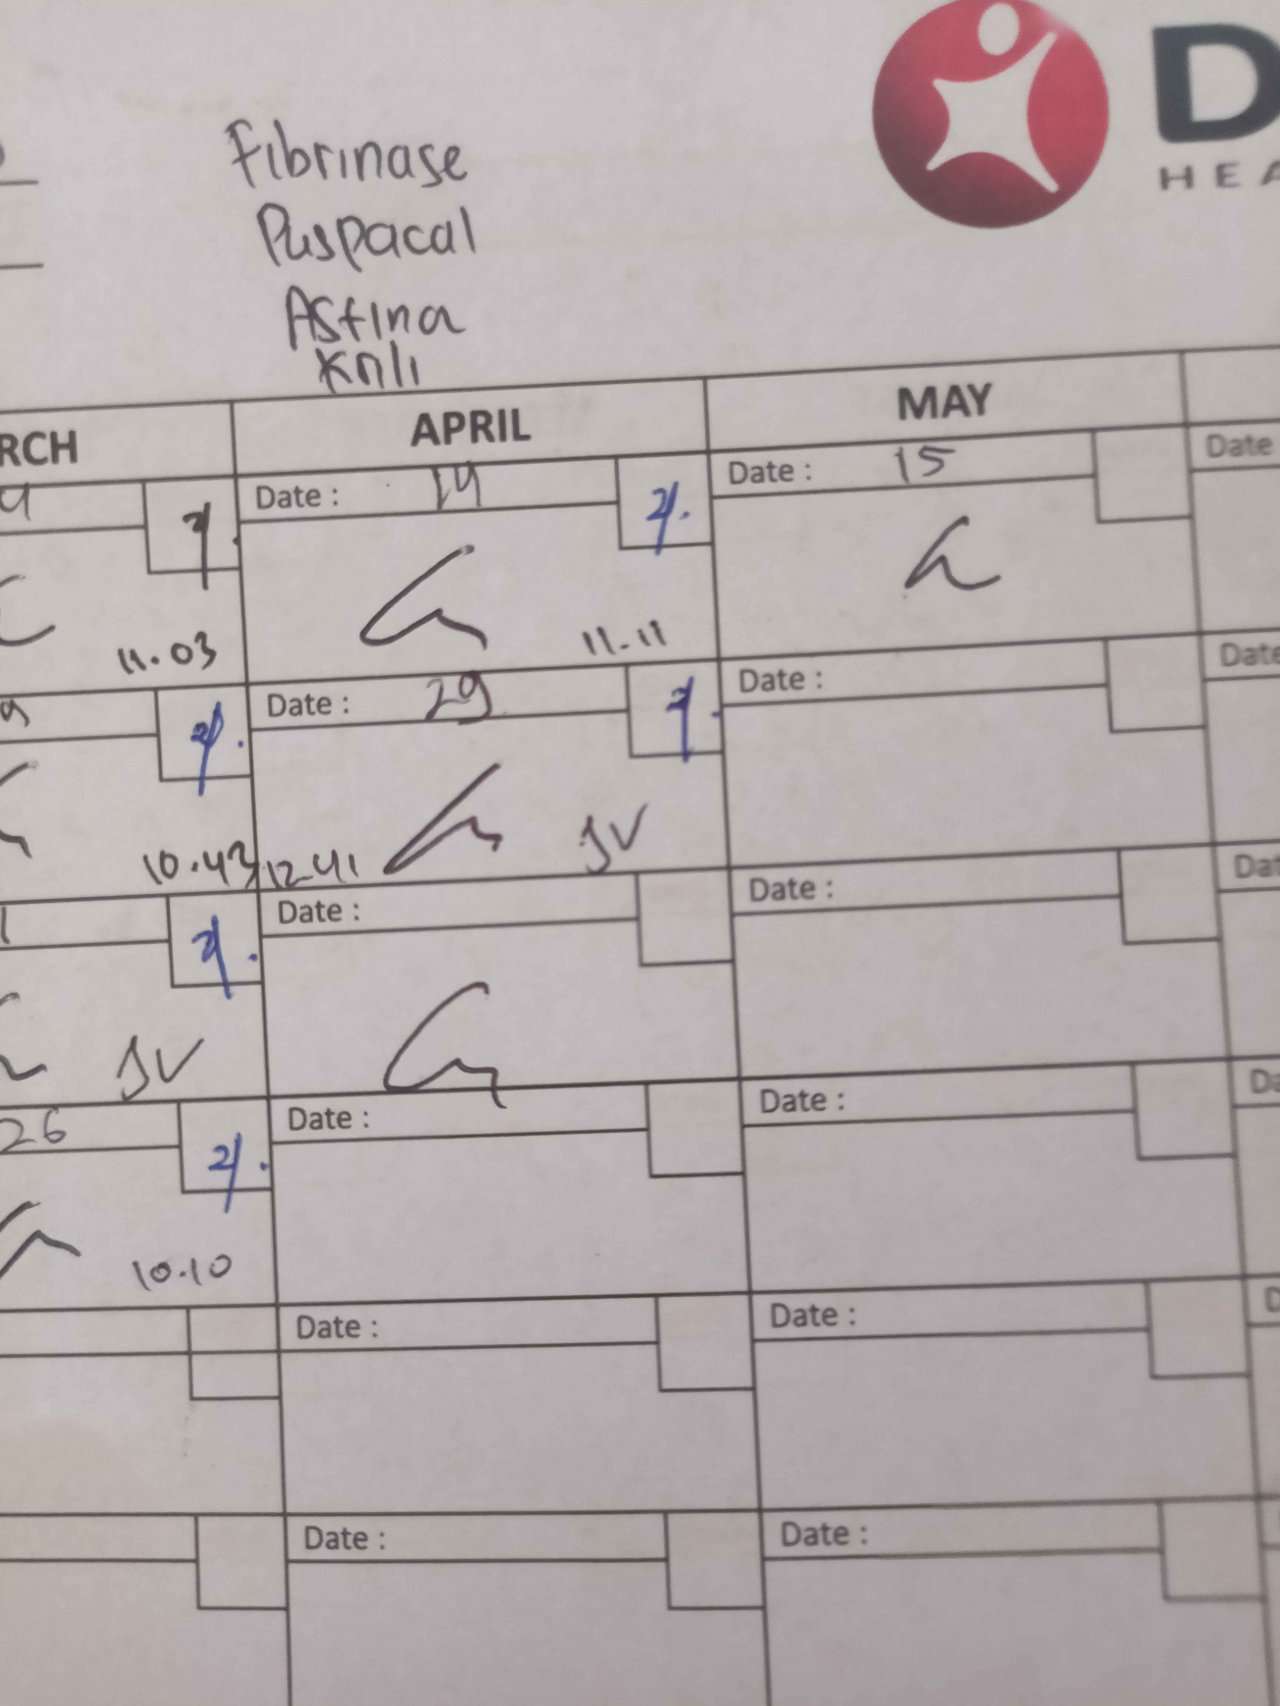 D
HEA
Fibrinase
Puspacal
Astina
RCH
APRIL
MAY
Date : 19
Date : 15
Date
11.03
11.11
Date : 29
Date :
Date
10.43
12.41
JV
Date :
Date :
Dat
JV
26
Date :
Date :
Da
10.10
Date :
Date :
D
Date :
Date :